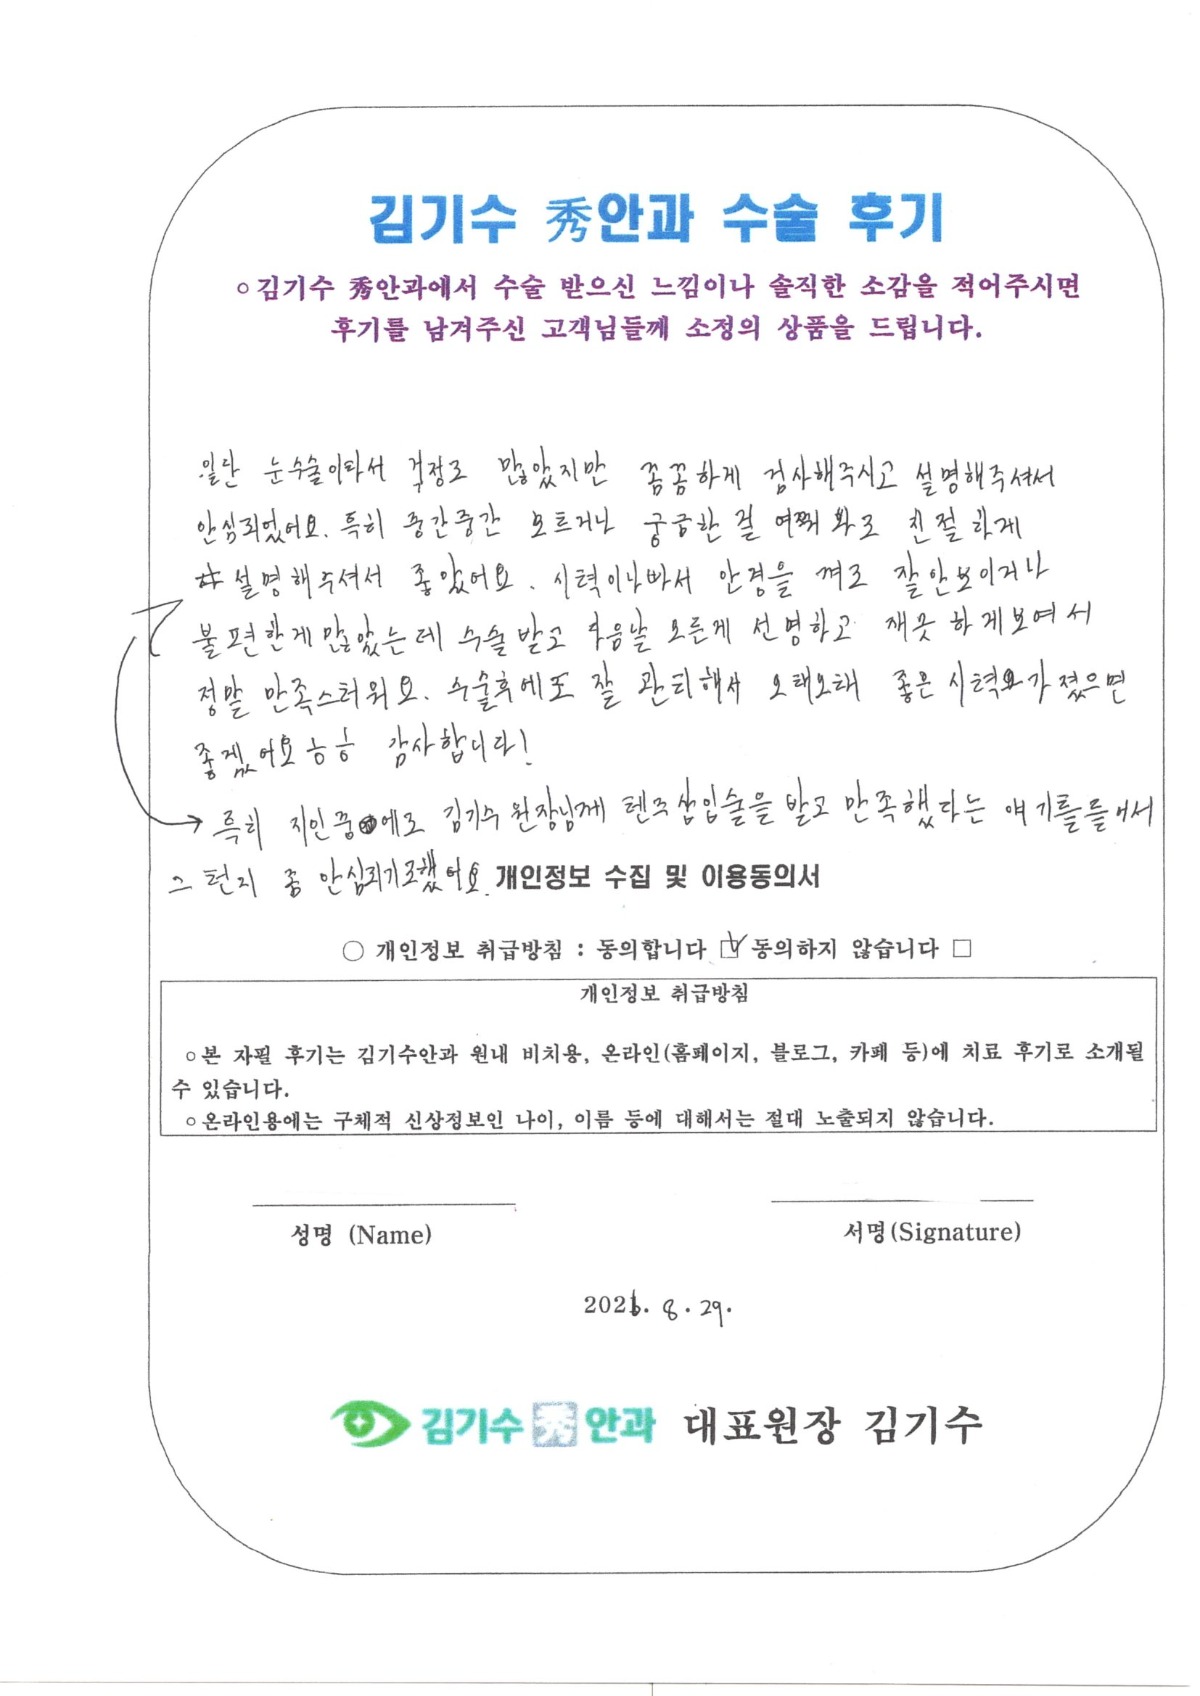 김기수 秀안과 수술 후기
○김기수 秀안과에서 수술 받으신 느낌이나 솔직한 소감을 적어주시면
후기를 남겨주신 고객님들께 소정의 상품을 드립니다.
일단 눈수술이라서 걱정도 많았지만 꼼꼼하게 검사해주시고 설명해주셔서
안심되었어요. 특히 중간중간 모르거나 궁금한 걸 여쭤 봐도 친절하게
설명해주셔서 좋았어요. 시력이 나빠서 안경을 껴도 잘 안보이거나
불편한게 많았는데 수술 받고 다음날 모든게 선명하고 깨끗하게 보여서
정말 만족스러워요. 수술후에도 잘 관리해서 오래오래 좋은 시력 가졌으면
좋겠어요ㅎㅎ 감사합니다!
→ 특히 지인중에도 김기수 원장님께 렌즈삽입술을 받고 만족했다는 얘기를 들어서
그런지 좀 안심되기도했어요. 개인정보 수집 및 이용동의서
○ 개인정보 취급방침 : 동의합니다 ☑ 동의하지 않습니다 □
개인정보 취급방침
○본 자필 후기는 김기수안과 원내 비치용, 온라인(홈페이지, 블로그, 카페 등)에 치료 후기로 소개될
수 있습니다.
○온라인용에는 구체적 신상정보인 나이, 이름 등에 대해서는 절대 노출되지 않습니다.
성명 (Name) 서명(Signature)
8. 29.
김기수 秀 안과 대표원장 김기수